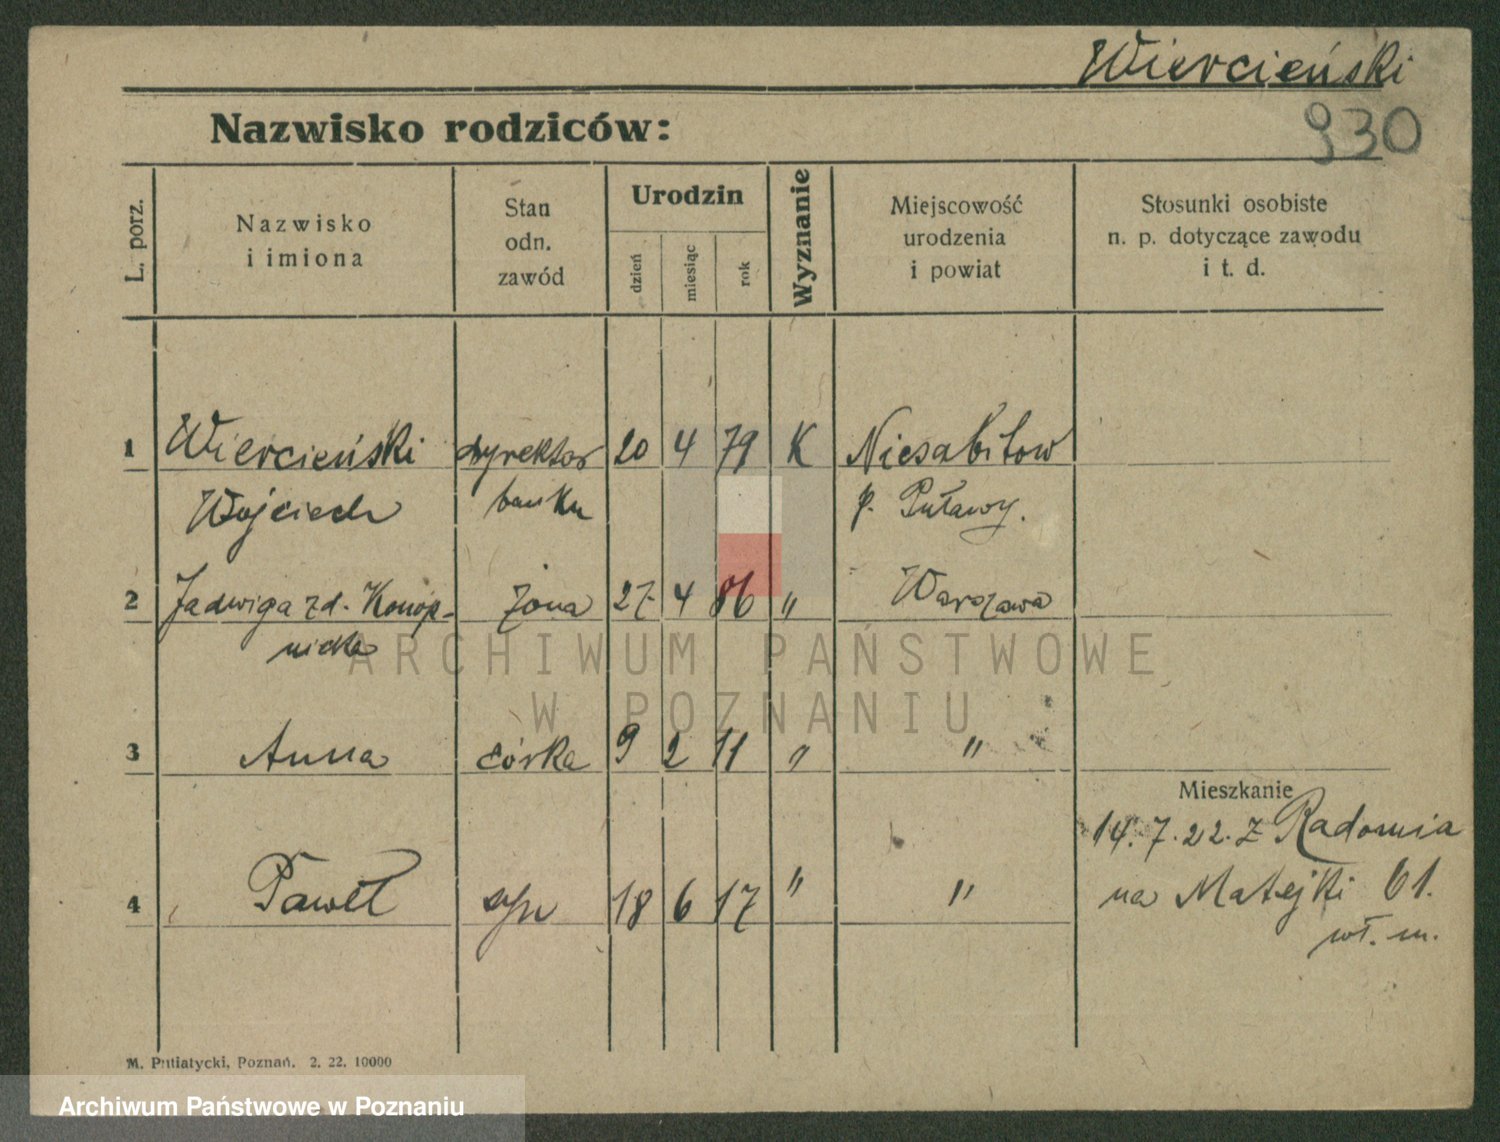 Wiercieński
930
Nazwisko rodziców:
L. porz.
Nazwisko
i imiona
Stan
odn.
zawód
Urodzin
dzień
miesiąc
rok
Wyznanie
Miejscowość
urodzenia
i powiat
Stosunki osobiste
n. p. dotyczące zawodu
i t. d.
1 Wiercieński dyrektor 20 4 79 K Niesabitow
Wojciech banku p. Puławy.
2 Jadwiga zd. Konop- żona 27 4 86 " Warszawa
nicka
ARCHIWUM PAŃSTWOWE
W POZNANIU
3 Anna córka 9 2 11 " "
Mieszkanie
14.7.22. z Radomia
4 Paweł syn 18 6 17 " " na Matejki 61.
wł. m.
M. Putiatycki, Poznań. 2. 22. 10000
Archiwum Państwowe w Poznaniu